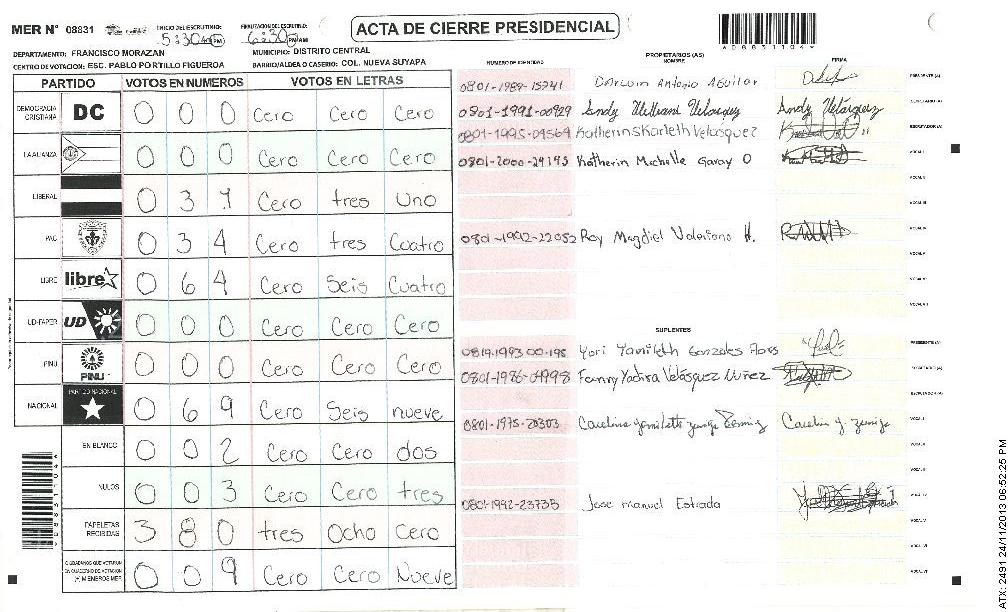 MER Nº 08831 INICIO DEL ESCRUTINIO: 5:30 PM FINALIZACION DEL ESCRUTINIO: 6:30 PM AM
ACTA DE CIERRE PRESIDENCIAL
*08831104*
DEPARTAMENTO: FRANCISCO MORAZAN MUNICIPIO: DISTRITO CENTRAL
CENTRO DE VOTACION: ESC. PABLO PORTILLO FIGUEROA BARRIO/ALDEA O CASERIO: COL. NUEVA SUYAPA
PARTIDO VOTOS EN NUMEROS VOTOS EN LETRAS
DEMOCRACIA CRISTIANA DC 0 0 0 Cero Cero Cero
LA ALIANZA 0 0 0 Cero Cero Cero
LIBERAL 0 3 1 Cero tres Uno
PAC 0 3 4 Cero tres Cuatro
LIBRE libre 0 6 4 Cero Seis Cuatro
UD-FAPER UD 0 0 0 Cero Cero Cero
PINU PINU 0 0 0 Cero Cero Cero
NACIONAL PARTIDO NACIONAL 0 6 9 Cero Seis nueve
EN BLANCO 0 0 2 Cero Cero dos
NULOS 0 0 3 Cero Cero tres
PAPELETAS RECIBIDAS 3 8 0 tres Ocho Cero
CIUDADANOS QUE VOTARON EN CUADERNO DE VOTACION (+) MIEMBROS MER 0 0 9 Cero Cero Nueve
PROPIETARIOS (AS)
NUMERO DE IDENTIDAD NOMBRE FIRMA
0801-1989-15241 Darwin Antonio Aguilar PRESIDENTE (A)
0801-1991-00929 Andy Williams Velasquez Andy Velásquez SECRETARIO (A)
0801-1995-09564 Katherin Skarleth Velasquez ESCRUTADOR (A)
0801-2000-29195 Katherin Michelle Garay O VOCAL I
VOCAL II
VOCAL III
0801-1992-22052 Roy Magdiel Valeriano H. VOCAL IV
VOCAL V
VOCAL VI
VOCAL VII
SUPLENTES
0819-1993 00-198 Yori Yamileth Gonzales Flores PRESIDENTE (A)
0801-1986-04998 Fanny Yadira Velásquez Nuñez SECRETARIO (A)
ESCRUTADOR (A)
0801-1975-20303 VOCAL I
VOCAL II
VOCAL III
0801-1992-23735 Jose manuel Estrada VOCAL IV
VOCAL V
VOCAL VI
VOCAL VII
ATX: 2491 24/11/2013 06:52:25 PM